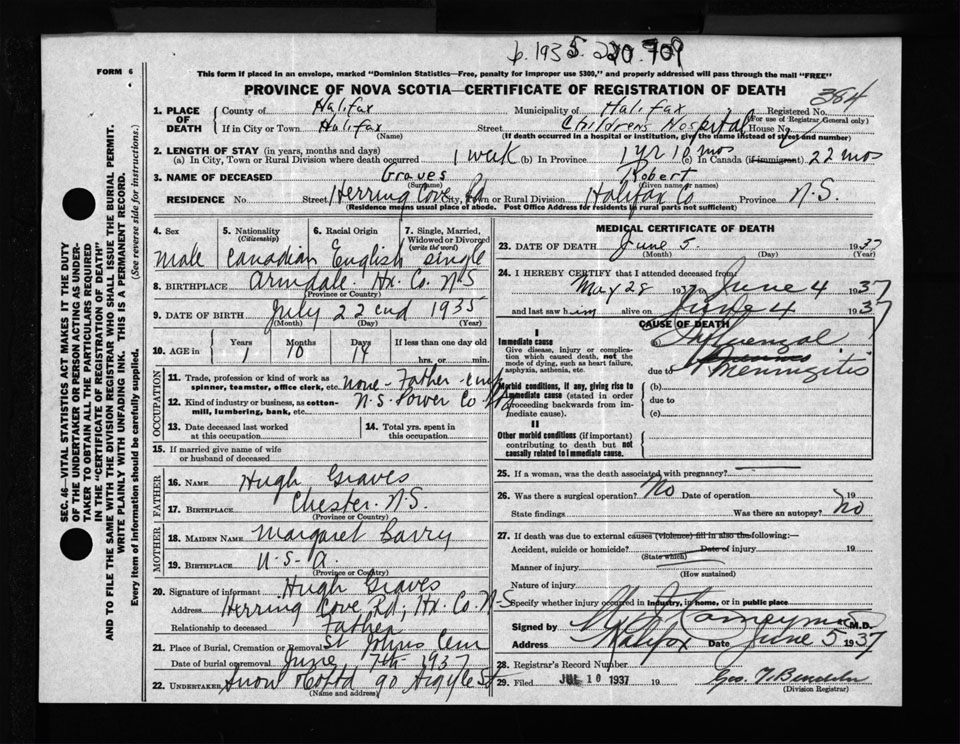 b. 1935. 220.709
FORM 6
This form if placed in an envelope, marked "Dominion Statistics—Free, penalty for improper use $300," and properly addressed will pass through the mail "FREE"
PROVINCE OF NOVA SCOTIA—CERTIFICATE OF REGISTRATION OF DEATH
384
1. PLACE OF DEATH County of Halifax Municipality of Halifax Registered No.
(For use of Registrar General only)
If in City or Town Halifax Street Childrens Hospital House No.
(Name) (If death occurred in a hospital or institution, give the name instead of street and number)
2. LENGTH OF STAY (in years, months and days)
(a) In City, Town or Rural Division where death occurred 1 week (b) In Province 1 yr 10 mos (c) In Canada (if immigrant) 22 mos
3. NAME OF DECEASED Graves Robert
(Surname) (Given name or names)
RESIDENCE No. Street Herring Cove Rd City, Town or Rural Division Halifax Co Province N.S.
(Residence means usual place of abode. Post Office Address for residents in rural parts not sufficient)
4. Sex 5. Nationality (Citizenship) 6. Racial Origin 7. Single, Married, Widowed or Divorced (write the word)
male Canadian English single
8. BIRTHPLACE Armdale Hx. Co. N.S
(Province or Country)
9. DATE OF BIRTH July 22nd 1935
(Month) (Day) (Year)
10. AGE in Years Months Days If less than one day old
1 10 14 hrs. or min.
OCCUPATION
11. Trade, profession or kind of work as spinner, teamster, office clerk, etc. none - Father - Emp
12. Kind of industry or business, as cotton-mill, lumbering, bank, etc. N.S. Power Co
13. Date deceased last worked at this occupation 14. Total yrs. spent in this occupation
15. If married give name of wife or husband of deceased
FATHER
16. NAME Hugh Graves
17. BIRTHPLACE Chester N.S.
(Province or Country)
MOTHER
18. MAIDEN NAME Margaret Barry
19. BIRTHPLACE U.S.A.
(Province or Country)
20. Signature of informant Hugh Graves
Address Herring Cove Rd, Hx. Co. N.S
Relationship to deceased Father
21. Place of Burial, Cremation or Removal St Johns Cem
Date of burial or removal June 7th 1937
22. UNDERTAKER Snow & Co Ltd 90 Argyle St
(Name and address)
MEDICAL CERTIFICATE OF DEATH
23. DATE OF DEATH June 5. 1937
(Month) (Day) (Year)
24. I HEREBY CERTIFY that I attended deceased from
May 28 1937 to June 4 1937
and last saw him alive on June 4 1937
CAUSE OF DEATH
I
Immediate cause
Give disease, injury or complication which caused death, not the mode of dying, such as heart failure, asphyxia, asthenia, etc.
(a) Influenzal
due to Meningitis
Morbid conditions, if any, giving rise to immediate cause (stated in order proceeding backwards from immediate cause).
(b)
due to
(c)
II
Other morbid conditions (if important) contributing to death but not causally related to immediate cause.
25. If a woman, was the death associated with pregnancy? —
26. Was there a surgical operation? No Date of operation 19
State findings Was there an autopsy? No
27. If death was due to external causes (violence) fill in also the following:—
Accident, suicide or homicide? Date of injury 19
(State which)
Manner of injury
(How sustained)
Nature of injury
Specify whether injury occurred in industry, in home, or in public place
Signed by M.D.
Address Halifax Date June 5 1937
28. Registrar's Record Number
29. Filed JUL 10 1937 19
(Division Registrar)
SEC. 46—VITAL STATISTICS ACT MAKES IT THE DUTY
OF THE UNDERTAKER OR PERSON ACTING AS UNDERTAKER TO OBTAIN ALL THE PARTICULARS REQUIRED
IN THE "CERTIFICATE OF REGISTRATION OF DEATH" AND TO FILE THE SAME WITH THE DIVISION REGISTRAR WHO SHALL ISSUE THE BURIAL PERMIT.
WRITE PLAINLY WITH UNFADING INK. THIS IS A PERMANENT RECORD.
Every item of information should be carefully supplied. (See reverse side for instructions.)